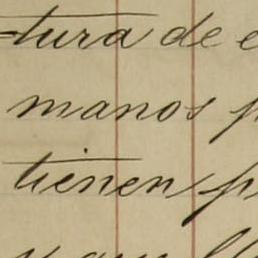 tura de e
manos p
tienen p